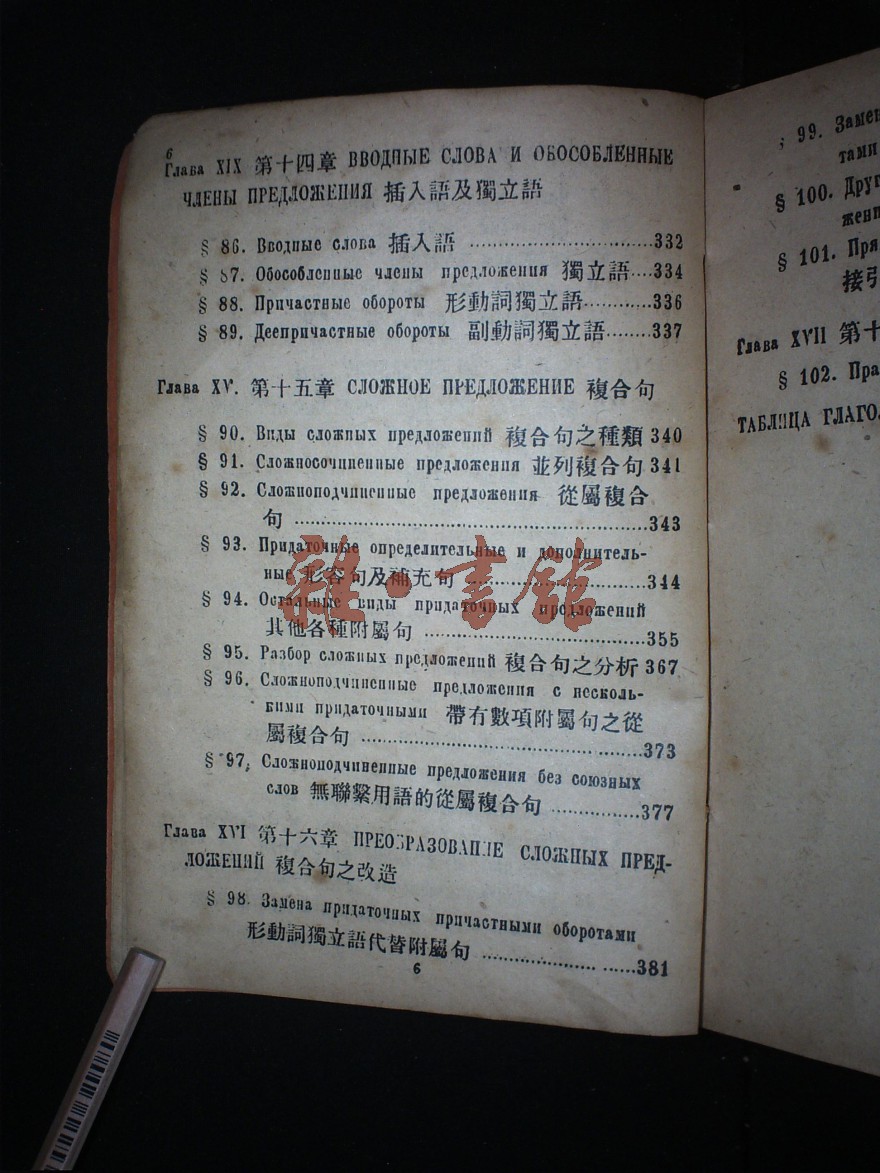 6
Глава XIX 第十四章 ВВОДНЫЕ СЛОВА И ОБОСОБЛЕННЫЕ
ЧЛЕНЫ ПРЕДЛОЖЕНИЯ 插入語及獨立語
§ 86. Вводные слова 插入語 ............................332
§ 87. Обособленные члены предложения 獨立語....334
§ 88. Причастные обороты 形動詞獨立語............336
§ 89. Деепричастные обороты 副動詞獨立語........337
Глава XV. 第十五章 СЛОЖНОЕ ПРЕДЛОЖЕНИЕ 複合句
§ 90. Виды сложных предложений 複合句之種類 340
§ 91. Сложносочиненные предложения 並列複合句 341
§ 92. Сложноподчиненные предложения 從屬複合
句 ......................................................343
§ 93. Придаточные определительные и дополнитель-
ные 形容句及補充句 ............................344
§ 94. Остальные виды придаточных предложений
其他各種附屬句 ..................................355
§ 95. Разбор сложных предложений 複合句之分析 367
§ 96. Сложноподчиненные предложения с несколь-
кими придаточными 帶有數項附屬句之從
屬複合句 ..........................................373
§ 97. Сложноподчиненные предложения без союзных
слов 無聯繫用語的從屬複合句 ...............377
Глава XVI 第十六章 ПРЕОБРАЗОВАНИЕ СЛОЖНЫХ ПРЕД-
ЛОЖЕНИЙ 複合句之改造
§ 98. Замена придаточных причастными оборотами
形動詞獨立語代替附屬句 ........................381
6
雜·書館
§ 99. Замен
тами
§ 100. Друг
жени
§ 101. Пря
接引
Глава XVII 第十
§ 102. Пра
ТАБЛИЦА ГЛАГОЛ